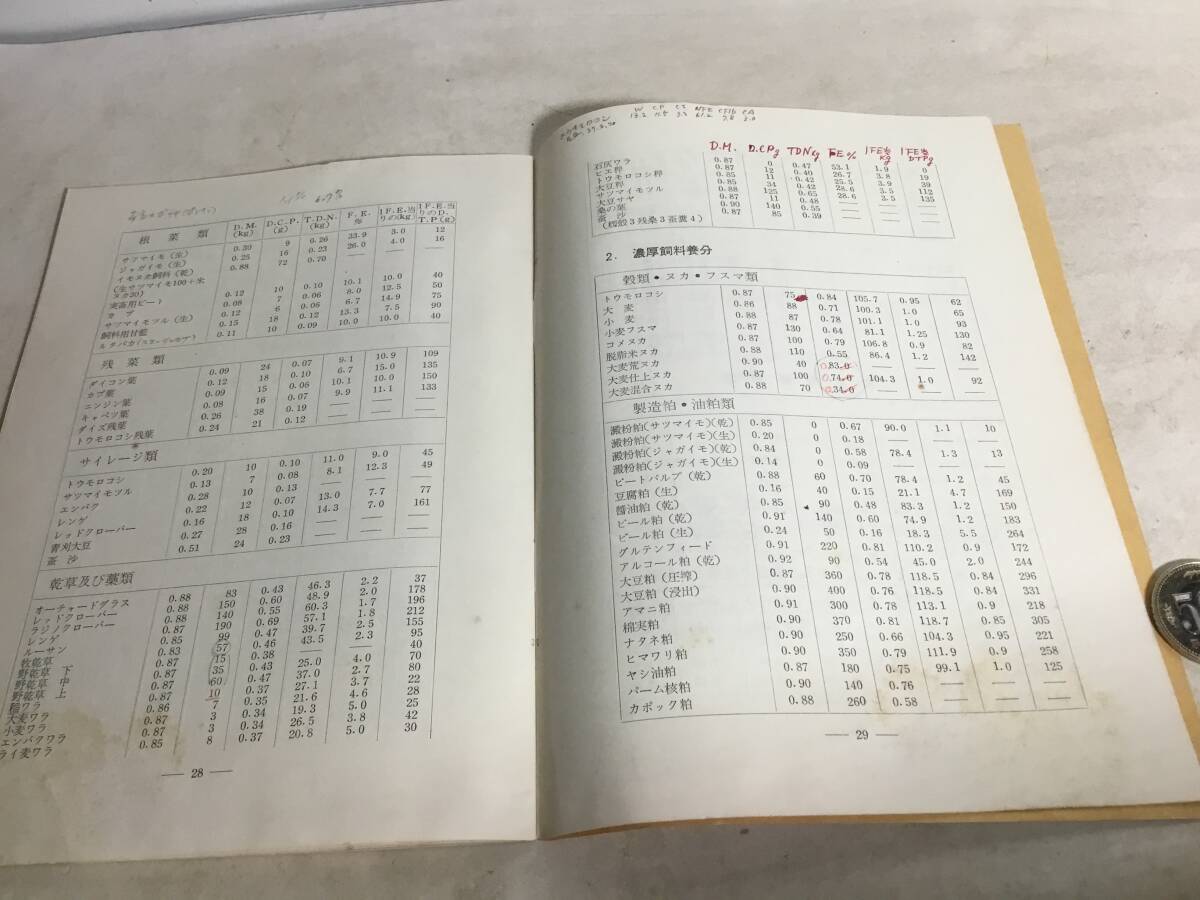 根菜類 D.M.(kg) D.C.P.(g) T.D.N.(kg) F.E.% 1F.E.当りの(kg) 1F.E.当りのD.T.P(g)
サツマイモ(生) 0.30 9 0.26 33.9 3.0 12
ジャガイモ(生) 0.25 16 0.23 26.0 4.0 16
イモヌカ飼料(乾) 0.88 72 0.70 —— —— ——
(生サツマイモ100+米ヌカ20)
家畜用ビート 0.12 10 0.10 10.1 10.0 40
カブ 0.08 7 0.06 8.0 12.5 50
サツマイモツル(生) 0.12 6 0.06 6.7 14.9 75
飼料用甘藍 0.15 18 0.12 13.3 7.5 90
ルタバカ 0.11 10 0.09 10.0 10.0 40
残菜類
ダイコン葉 0.09 24 0.07 9.1 10.9 109
カブ葉 0.12 18 0.10 6.7 15.0 135
ニンジン葉 0.09 15 0.06 10.1 10.0 150
キャベツ葉 0.08 16 0.07 9.9 11.1 133
ダイズ残葉 0.26 38 0.19
トウモロコシ残葉 0.24 21 0.12
サイレージ類
トウモロコシ 0.20 10 0.10 11.0 9.0 45
サツマイモツル 0.13 7 0.08 8.1 12.3 49
エンバク 0.28 10 0.13 —— —— ——
レンゲ 0.22 12 0.07 13.0 7.7 77
レッドクローバー 0.16 18 0.10 14.3 7.0 161
青刈大豆 0.27 28 0.16 —— —— ——
蚕沙 0.51 24 0.23 —— —— ——
乾草及び藁類
オーチャードグラス 0.88 83 0.43 46.3 2.2 37
レッドクローバー 0.88 150 0.60 48.9 2.0 178
ラジノクローバー 0.88 140 0.55 60.3 1.7 196
レンゲ 0.87 190 0.69 57.1 1.8 212
ルーサン 0.85 99 0.47 39.7 2.5 155
牧乾草 0.83 57 0.46 43.5 2.3 95
野乾草 下 0.87 15 0.38 25.0 4.0 40
野乾草 中 0.87 35 0.43 37.0 2.7 70
野乾草 上 0.87 60 0.47 27.1 3.7 80
稲ワラ 0.87 10 0.37 21.6 4.6 22
大麦ワラ 0.86 7 0.35 19.3 5.0 28
小麦ワラ 0.87 3 0.34 26.5 3.8 25
エンバクワラ 0.87 3 0.34 20.8 5.0 42
ライ麦ワラ 0.85 8 0.37 30
— 28 —
W CP
D.M. D.CPg TDNkg FE% 1FE当kg 1FE当DTPg
石灰ワラ 0.87 0 0.47 53.1 1.9 0
ヒエ稈 0.87 12 0.40 26.7 3.8 19
トウモロコシ稈 0.85 11 0.42 25.5 3.9 39
大豆稈 0.85 34 0.42 28.6 3.5 112
サツマイモツル 0.88 125 0.65 28.6 3.5 135
大豆サヤ 0.88 11 0.48 ——
桑の葉 0.90 140 0.55 ——
蚕沙 0.87 85 0.39 ——
(穀殻3残桑3蚕糞4)
2. 濃厚飼料養分
穀類・ヌカ・フスマ類
トウモロコシ 0.87 75 0.84 105.7 0.95 62
大麦 0.86 88 0.71 100.3 1.0 65
小麦 0.88 87 0.78 101.1 1.0 93
小麦フスマ 0.87 130 0.64 81.1 1.25 130
コメヌカ 0.87 100 0.79 106.8 0.9 82
脱脂米ヌカ 0.88 110 0.55 86.4 1.2 142
大麦荒ヌカ 0.90 40 0.83.0 —— —— ——
大麦仕上ヌカ 0.87 100 0.74.0 104.3 1.0 92
大麦混合ヌカ 0.88 70 0.34.0 —— —— ——
製造粕・油粕類
澱粉粕(サツマイモ)(乾) 0.85 0 0.67 90.0 1.1 10
澱粉粕(サツマイモ)(生) 0.20 0 0.18 —— —— ——
澱粉粕(ジャガイモ)(乾) 0.84 0 0.58 78.4 1.3 13
澱粉粕(ジャガイモ)(生) 0.14 0 0.09 —— —— ——
ビートパルプ(乾) 0.88 60 0.70 78.4 1.2 45
豆腐粕(生) 0.16 40 0.15 21.1 4.7 169
醬油粕(乾) 0.85 90 0.48 83.3 1.2 150
ビール粕(乾) 0.91 140 0.60 74.9 1.2 183
ビール粕(生) 0.24 50 0.16 18.3 5.5 264
グルテンフィード 0.91 220 0.81 110.2 0.9 172
アルコール粕(乾) 0.92 90 0.54 45.0 2.0 244
大豆粕(圧搾) 0.87 360 0.78 118.5 0.84 296
大豆粕(浸出) 0.90 400 0.76 118.5 0.84 331
アマニ粕 0.91 300 0.78 113.1 0.9 218
棉実粕 0.90 370 0.81 118.7 0.85 305
ナタネ粕 0.90 250 0.66 104.3 0.95 221
ヒマワリ粕 0.90 350 0.79 111.9 0.9 258
ヤシ油粕 0.87 180 0.75 99.1 1.0 125
パーム核粕 0.90 140 0.76 —— —— ——
カポック粕 0.88 260 0.58 —— —— ——
— 29 —